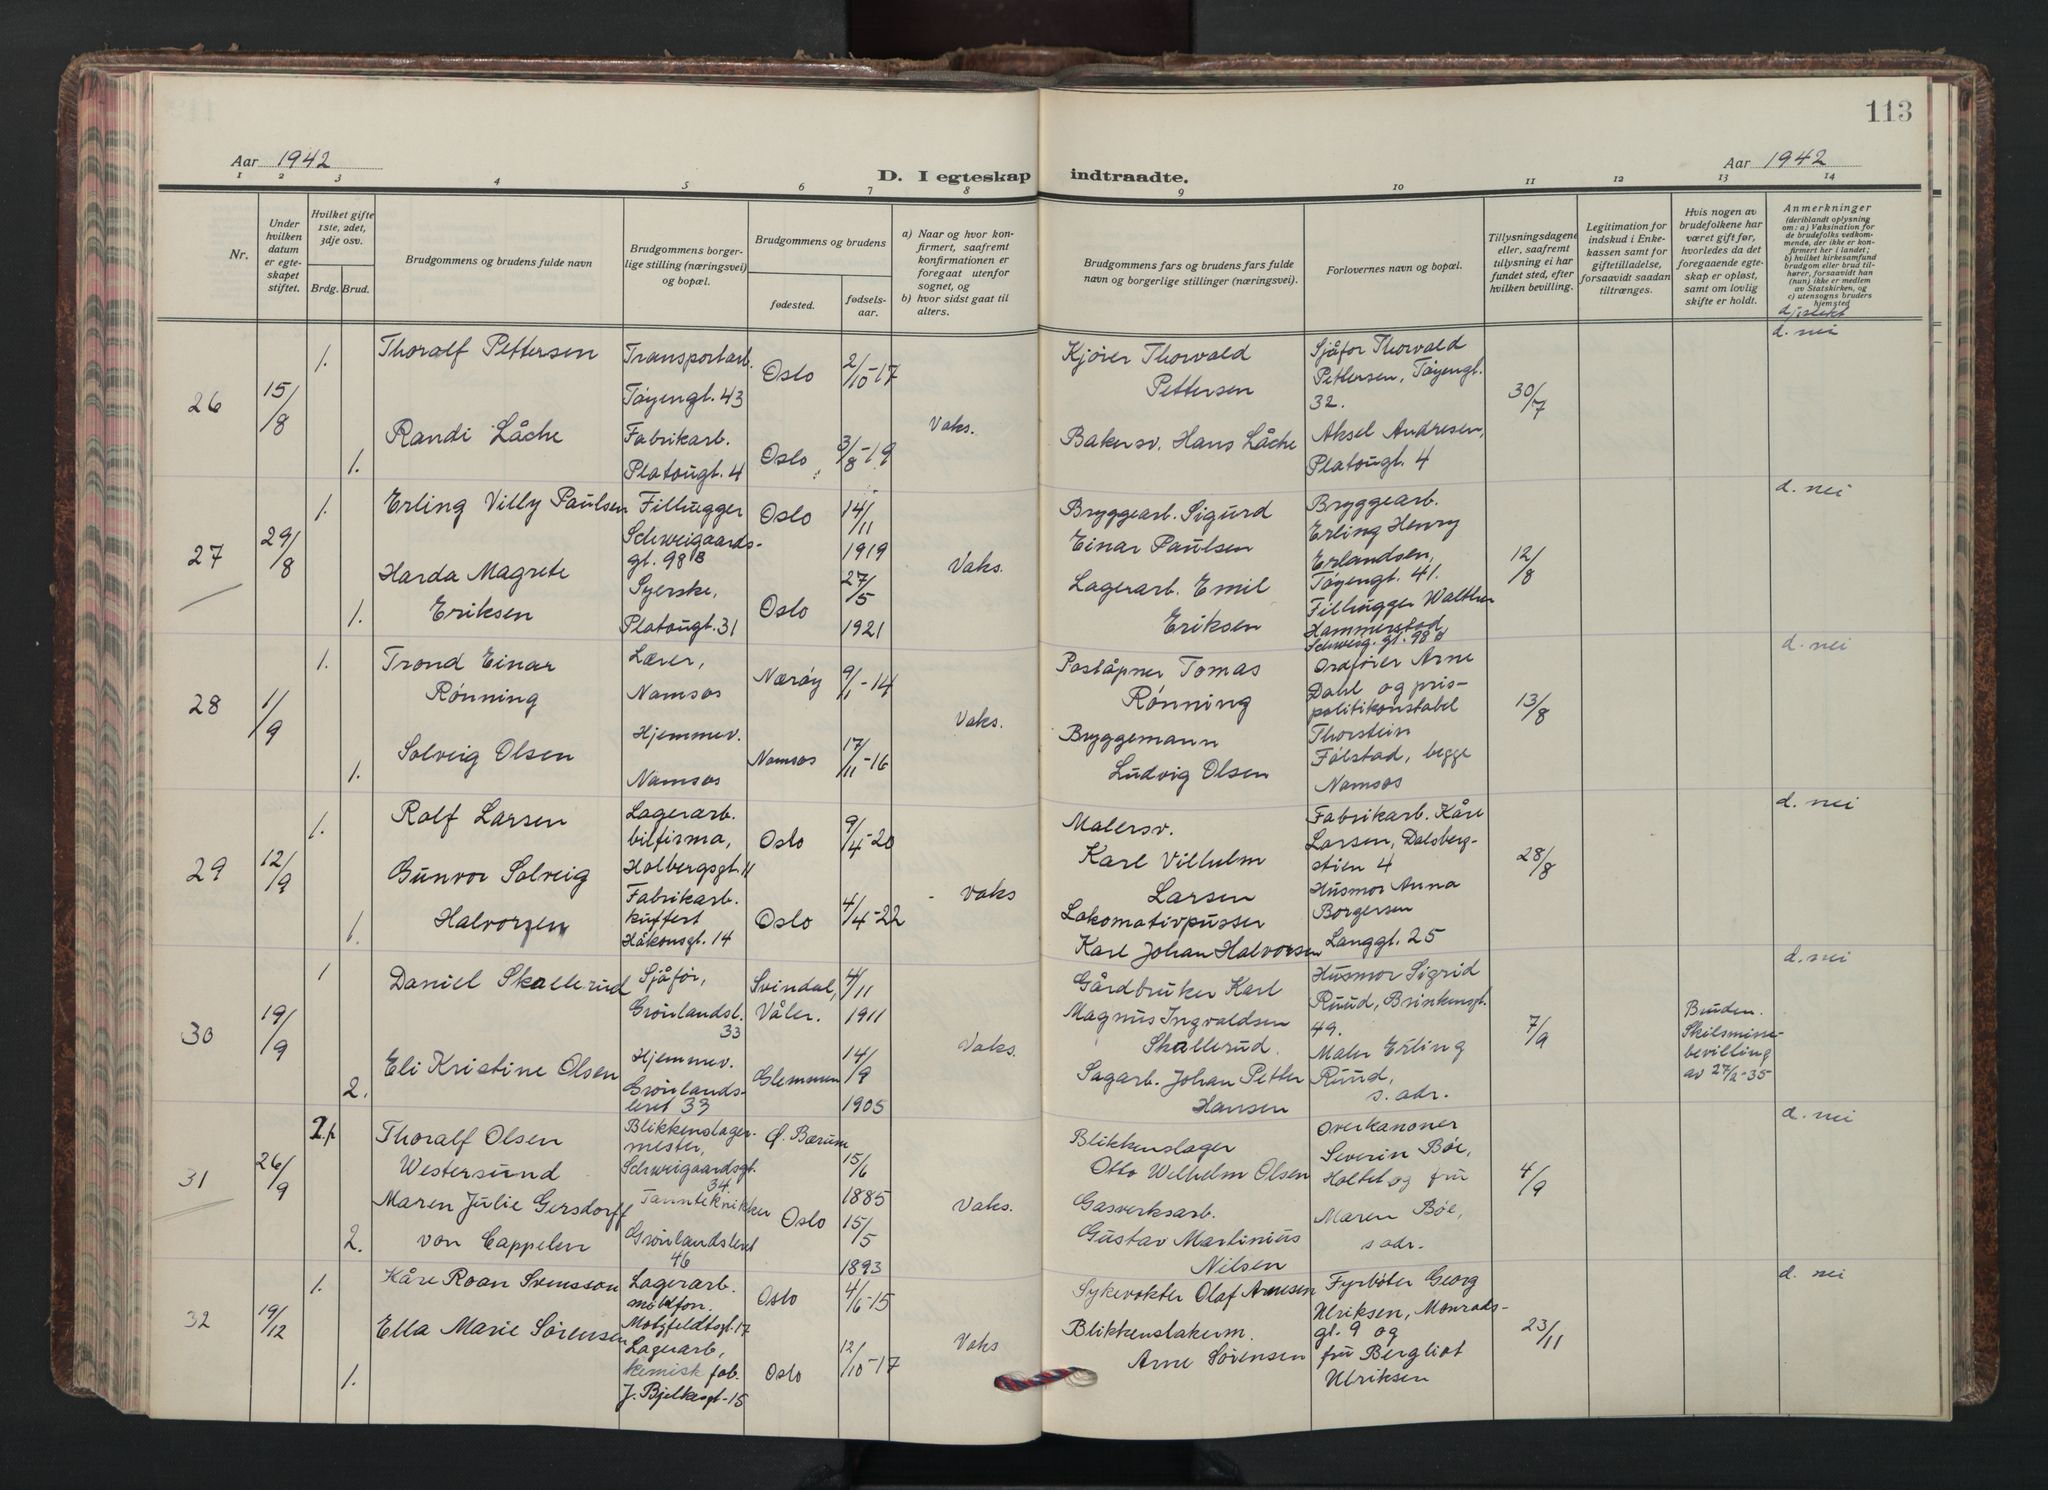 113
Aar 1942
D. I egteskap indtraadte.
Aar 1942
1 2 3 4 5 6 7 8 9 10 11 12 13 14
Nr.
Under
hvilken
datum
er egte-
skapet
stiftet.
Hvilket gifte
1ste, 2det,
3dje osv.
Brdg. Brud.
Brudgommens og brudens fulde navn
Brudgommens borger-
lige stilling (næringsvei)
og bopæl.
Brudgommens og brudens
fødested.
fødsels-
aar.
a) Naar og hvor kon-
firmert, saafremt
konfirmationen er
foregaat utenfor
sognet, og
b) hvor sidst gaat til
alters.
Brudgommens fars og brudens fars fulde
navn og borgerlige stillinger (næringsvei).
Forlovernes navn og bopæl.
Tillysningsdagene
eller, saafremt
tillysning ei har
fundet sted, efter
hvilken bevilling.
Legitimation for
indskud i Enke-
kassen samt for
giftetilladelse,
forsaavidt saadan
tiltrænges.
Hvis nogen av
brudefolkene har
været gift før,
hvorledes da det
foregaaende egte-
skap er opløst,
samt om lovlig
skifte er holdt.
Anmerkninger
(deriblandt oplysning
om: a) Vaksination for
de brudefolks vedkom-
mende, der ikke er kon-
firmert her i landet;
b) hvilket kirkesamfund
brudgom eller brud til-
hører, forsaavidt han
(hun) ikke er medlem
av Statskirken, og
c) utensogns bruders
hjemsted
d) slekt
26
15/8
1.
Thoralf Pettersen
Transportarb.
Tøyengt. 43
Oslo
2/10-17
Kjører Thorvald
Pettersen
Sjåfør Thorvald
Pettersen, Tøyengt.
32.
30/7
d. nei
1.
Randi Låche
Fabrikarb.
Platougt. 4
Oslo
3/8-19
Vaks.
Bakersv. Hans Låche
Aksel Andresen,
Platougt. 4
27
29/8
1.
Erling Villy Paulsen
Filhugger
Schweigaards-
gt. 98 B
Oslo
14/11
1919
Vaks.
Bryggearb. Sigurd
Einar Paulsen
Bryggearb.
Erling Henry
Erlandsen,
Tøyengt. 41.
12/8
d. nei
1.
Harda Magrete
Eriksen
Syerske,
Platougt. 31
Oslo
27/5
1921
Lagerarb. Emil
Eriksen
Filhugger Walther
Hammerstad
Schweig. gt. 98 B
28
1/9
1.
Trond Einar
Rønning
Lærer,
Namsos
Nærøy
9/1-14
Vaks.
Poståpner Tomas
Rønning
Ordfører Arne
Dahl og pris-
politikonstabel
13/8
d. nei
1.
Solveig Olsen
Hjemmev.
Namsos
Namsos
17/11-16
Bryggemann
Ludvig Olsen
Thorstein
Følstad, begge
Namsos
29
12/9
1.
Rolf Larsen
Lagerarb.
bilfirma,
Holbergsgt. 11
Oslo
9/4-20
Vaks
Malersv.
Karl Vilhelm
Larsen
Fabrikarb. Kåre
Larsen, Dalsberg-
stien 4
28/8
d. nei
1.
Gunvor Solveig
Halvorsen
Fabrikarb.
kuffert
Håkonsgt. 14
Oslo
4/4-22
Lokomotivpusser
Karl Johan Halvorsen
Husmor Anna
Borgersen
Langgt. 25
30
19/9
1
Daniel Skallerud
Sjåfør,
Grønlandsl.
33
Svindal,
Våler.
4/11
1911
Vaks.
Gårdbruker Karl
Magnus Ingvaldsen
Skallerud.
Husmor Sigrid
Ruud, Brinkengt.
49.
7/9
Bruden.
Skilsmisse-
bevilling
av 27/2-35
d. nei
2.
Eli Kristine Olsen
Hjemmev.
Grønlands-
leret 33
Glemmen
14/9
1905
Sagarb. Johan Petter
Hansen
Maler Erling
Ruud,
s. adr.
31
26/9
2.
Thoralf Olsen
Westersund
Blikkenslager-
mester,
Schweigaardsgt.
34
Ø. Bærum
15/6
1885
Vaks.
Blikkenslager
Otto Wilhelm Olsen
Overkanoner
Severin Bøe,
Holtet og fru
4/9
d. nei
2.
Maren Julie Gersdorff
von Cappelen
Tanntekniker
Grønlandsleret
46
Oslo
15/5
1893
Gasverksarb.
Gustav Martinius
Nilsen
Maren Bøe,
s adr.
32
19/12
1.
Kåre Roan Svensson
Lagerarb.
Motzfeldtsgt. 17
Oslo
4/6-15
Vaks
Sykevokter Olaf Arnesen
Fyrbøter Georg
Ulriksen, Monrads-
gt. 9 og
23/11
d. nei
1.
Ella Marie Sørensen
Lagerarb,
kemisk fab.
J. Bjelkesgt-15
Oslo
12/10-17
Blikkenslakerm.
Arne Sørensen
fru Bergliot
Ulriksen